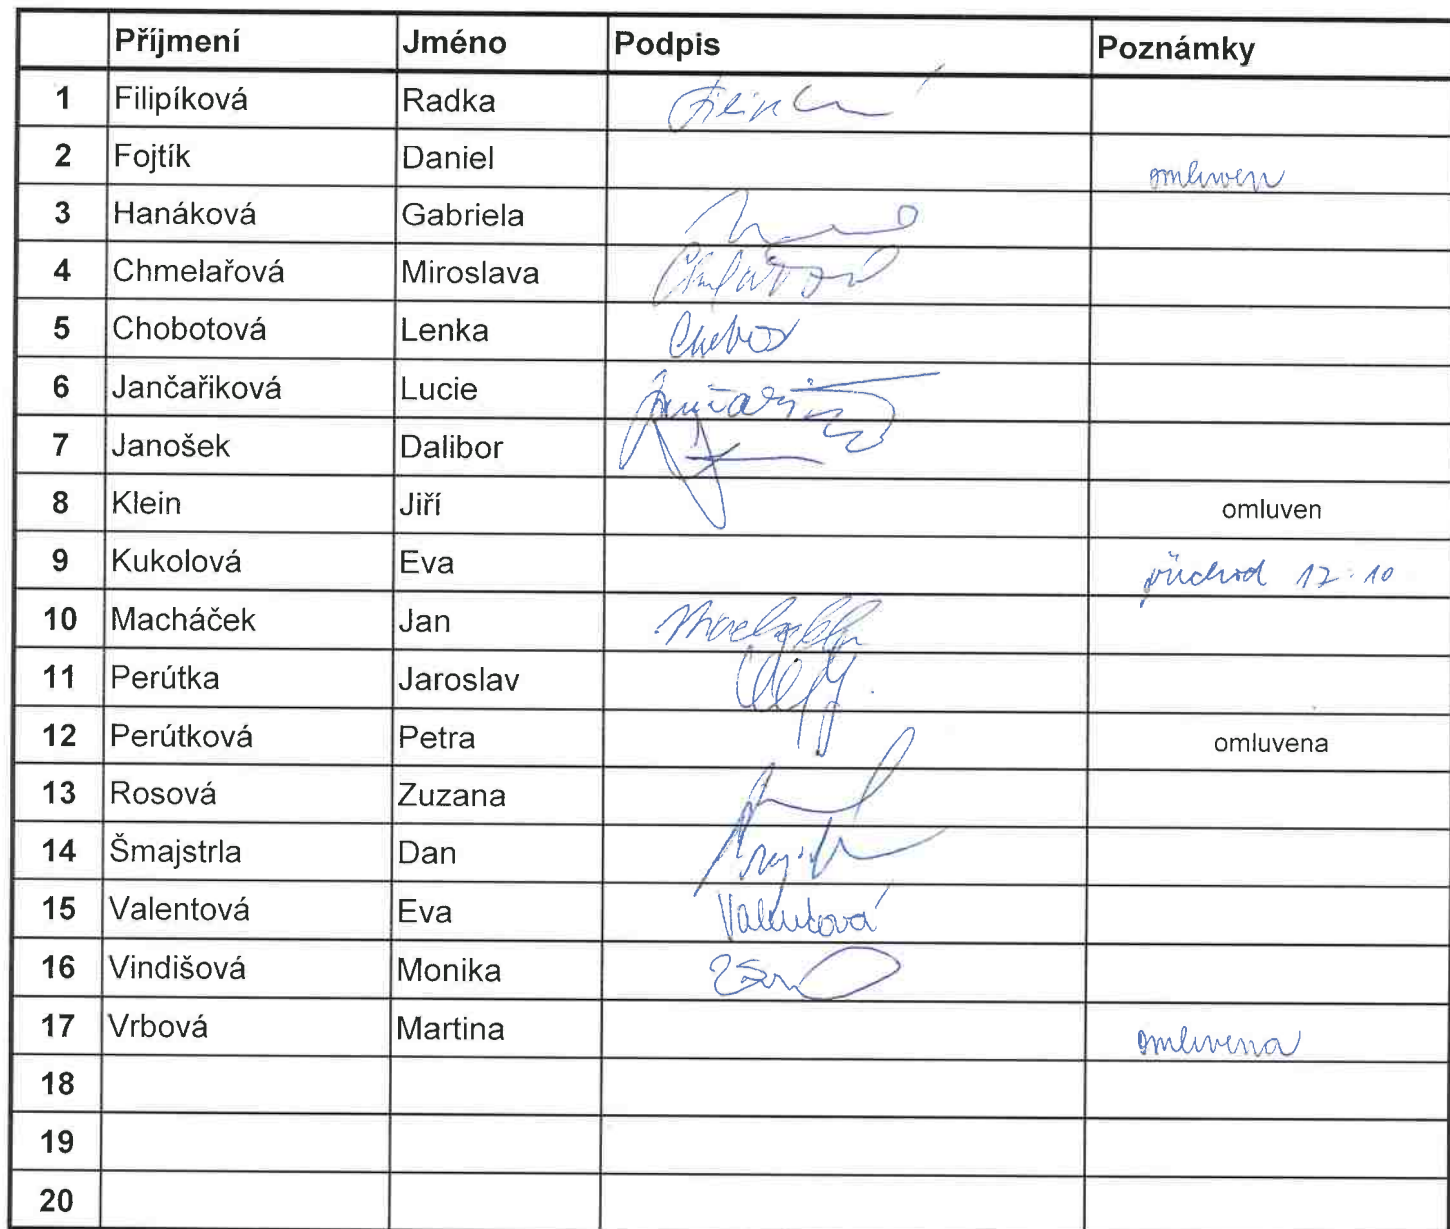 Příjmení Jméno Podpis Poznámky
1 Filipíková Radka
2 Fojtík Daniel omluven
3 Hanáková Gabriela
4 Chmelařová Miroslava
5 Chobotová Lenka
6 Jančaříková Lucie
7 Janošek Dalibor
8 Klein Jiří omluven
9 Kukolová Eva příchod 12:10
10 Macháček Jan
11 Perútka Jaroslav
12 Perútková Petra omluvena
13 Rosová Zuzana
14 Šmajstrla Dan
15 Valentová Eva Valentová
16 Vindišová Monika
17 Vrbová Martina omluvena
18
19
20